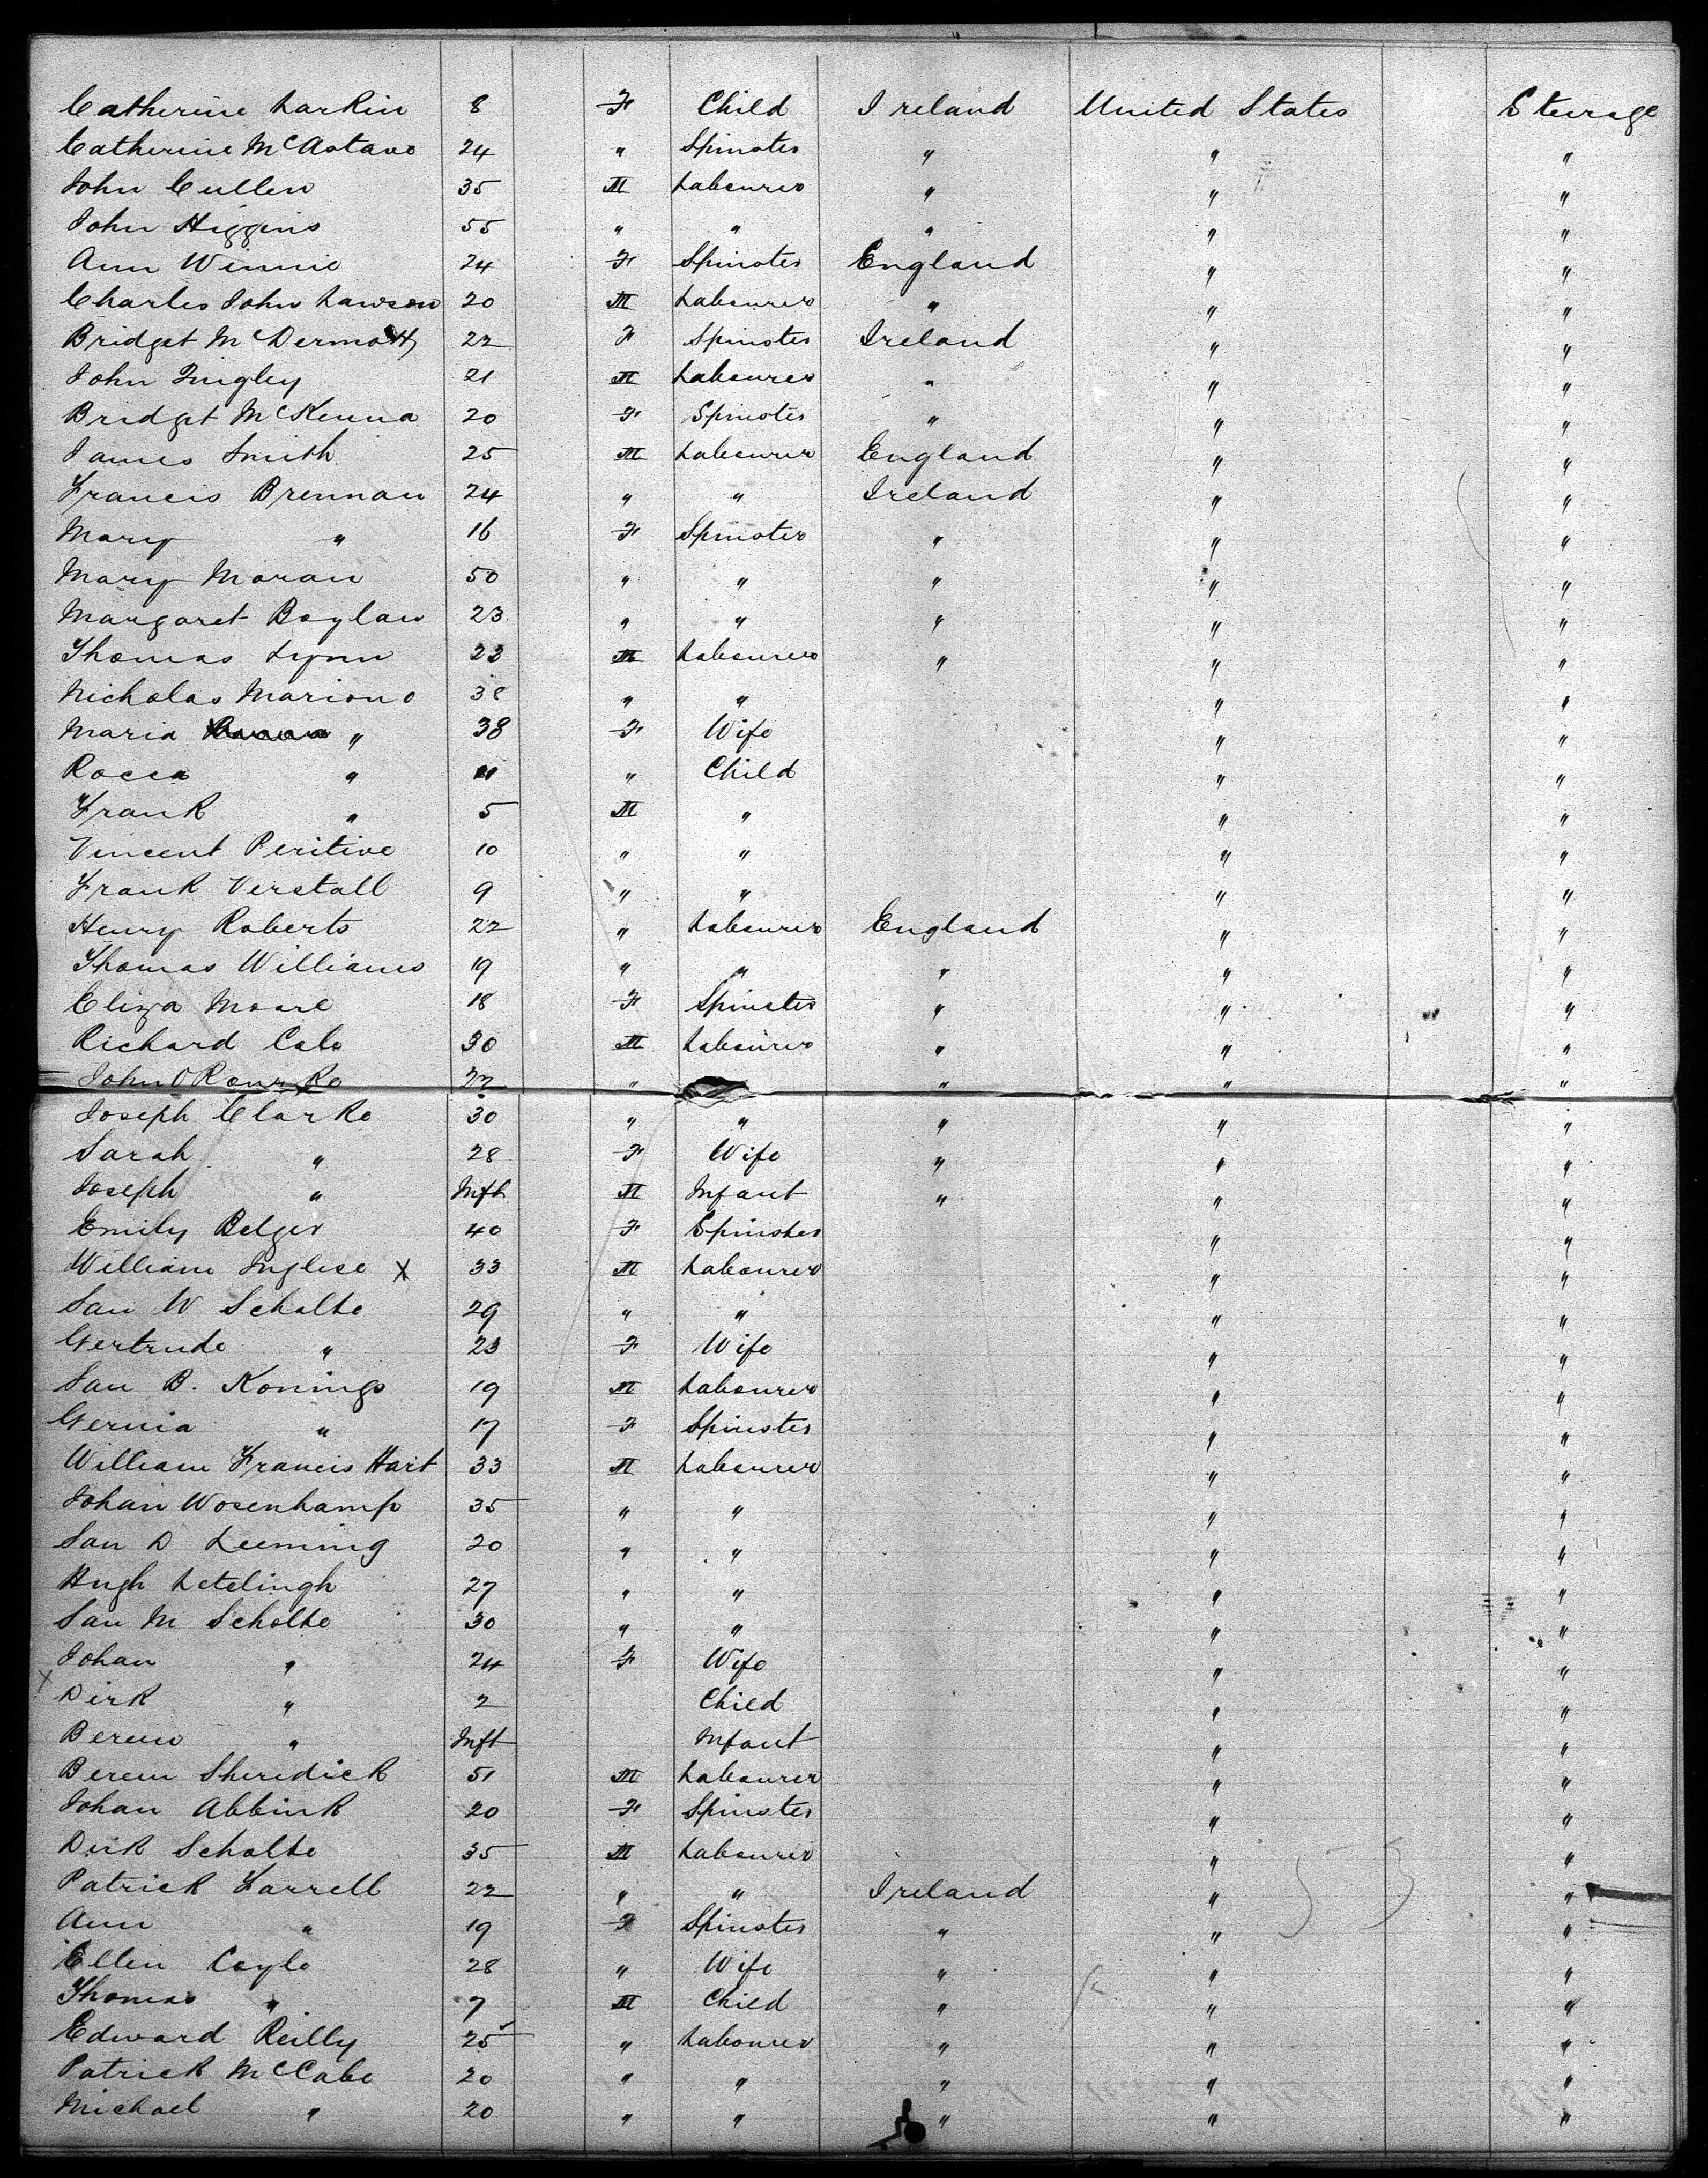 Catherine Larkin 8 F Child Ireland United States Steerage
Catherine McAntavo 24 " Spinster " " "
John Cullen 35 M Labourer " " "
John Higgins 55 " " " " "
Ann Winnie 24 F Spinster England " "
Charles John Lawson 20 M Labourer " " "
Bridget McDermott 22 F Spinster Ireland " "
John Quigley 21 M Labourer " " "
Bridget McKenna 20 F Spinster " " "
James Smith 25 M Labourer England " "
Francis Brennan 24 " " Ireland " "
Mary " 16 F Spinster " " "
Mary Moran 50 " " " " "
Margaret Boylan 23 " " " " "
Thomas Lynn 23 M Labourer " " "
Nicholas Mariono 38 " " " "
Maria " 38 F Wife " "
Rocca " 11 " Child " "
Frank " 5 M " " "
Vincent Peritive 10 " " " "
Frank Verstall 9 " " " "
Henry Roberts 22 " Labourer England " "
Thomas Williams 19 " " " " "
Eliza Moore 18 F Spinster " " "
Richard Cabe 30 M Labourer " " "
John O Rourke 22 " " " "
Joseph Clarke 30 " " " " "
Sarah " 28 F Wife " " "
Joseph " Inft M Infant " " "
Emily Belger 40 F Spinster " "
William Inglese X 33 M Labourer " "
Jan W Scholte 29 " " " "
Gertrude " 23 F Wife " "
Jan B. Konings 19 M Labourer " "
Gernia " 17 F Spinster " "
William Francis Hart 33 M Labourer " "
Johan Wosenkamp 35 " " " "
Jan D Leeming 20 " " " "
Hugh Letelingh 27 " " " "
Jan M Scholte 30 " " " "
Johan " 24 F Wife " "
X Dirk " 2 Child " "
Berew " Inft Infant " "
Berew Sheridick 51 M Labourer " "
Johan Abbink 20 F Spinster " "
Dirk Scholte 35 M Labourer " "
Patrick Farrell 22 " " Ireland " "
Ann " 19 F Spinster " " "
Ellen Coyle 28 " Wife " " "
Thomas " 7 M Child " " "
Edward Reilly 25 " Labourer " " "
Patrick McCabe 20 " " " " "
Michael " 20 " " " " "